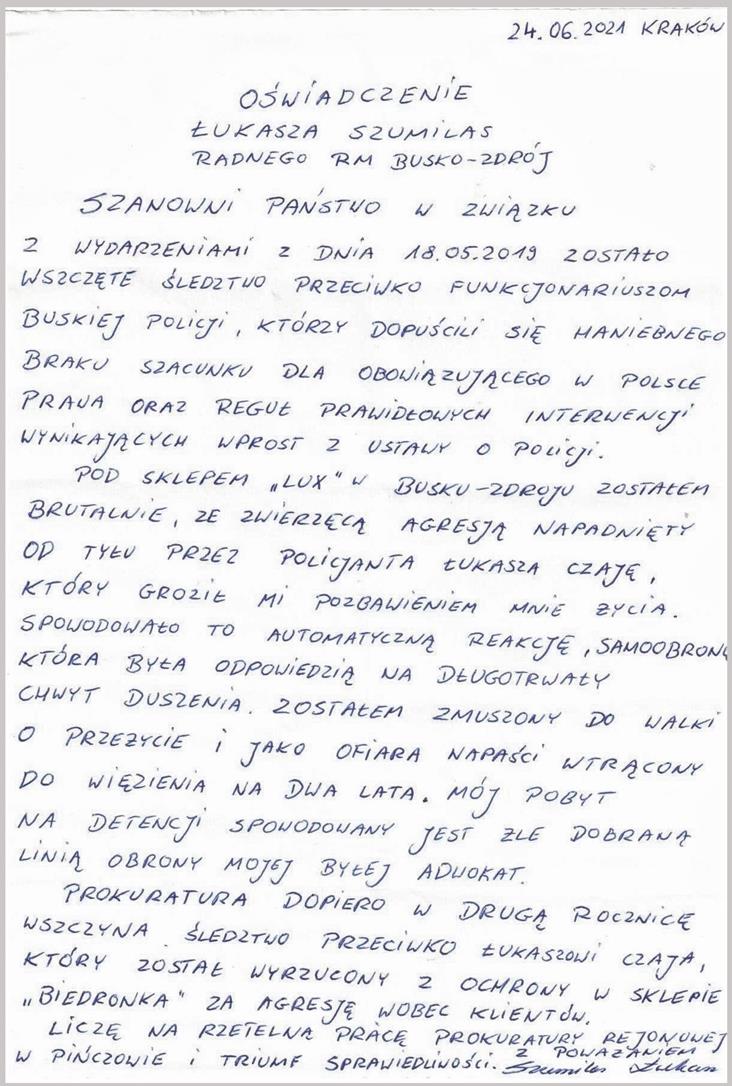 24.06.2021 KRAKÓW
OŚWIADCZENIE
ŁUKASZA SZUMILAS
RADNEGO RM BUSKO-ZDRÓJ
SZANOWNI PAŃSTWO W ZWIĄZKU
Z WYDARZENIAMI Z DNIA 18.05.2019 ZOSTAŁO
WSZCZĘTE ŚLEDZTWO PRZECIWKO FUNKCJONARIUSZOM
BUSKIEJ POLICJI, KTÓRZY DOPUŚCILI SIĘ HANIEBNEGO
BRAKU SZACUNKU DLA OBOWIĄZUJĄCEGO W POLSCE
PRAWA ORAZ REGUŁ PRAWIDŁOWYCH INTERWENCJI
WYNIKAJĄCYCH WPROST Z USTAWY O POLICJI.
POD SKLEPEM „LUX" W BUSKU-ZDROJU ZOSTAŁEM
BRUTALNIE, ZE ZWIERZĘCĄ AGRESJĄ NAPADNIĘTY
OD TYŁU PRZEZ POLICJANTA ŁUKASZA CZAJĘ,
KTÓRY GROZIŁ MI POZBAWIENIEM MNIE ŻYCIA.
SPOWODOWAŁO TO AUTOMATYCZNĄ REAKCJĘ, SAMOOBRONĘ
KTÓRA BYŁA ODPOWIEDZIĄ NA DŁUGOTRWAŁY
CHWYT DUSZENIA. ZOSTAŁEM ZMUSZONY DO WALKI
O PRZEŻYCIE I JAKO OFIARA NAPAŚCI WTRĄCONY
DO WIĘZIENIA NA DWA LATA. MÓJ POBYT
NA DETENCJI SPOWODOWANY JEST ŹLE DOBRANĄ
LINIĄ OBRONY MOJEJ BYŁEJ ADWOKAT.
PROKURATURA DOPIERO W DRUGĄ ROCZNICĘ
WSZCZYNA ŚLEDZTWO PRZECIWKO ŁUKASZOWI CZAJA,
KTÓRY ZOSTAŁ WYRZUCONY Z OCHRONY W SKLEPIE
„BIEDRONKA" ZA AGRESJĘ WOBEC KLIENTÓW.
LICZĘ NA RZETELNĄ PRACĘ PROKURATURY REJONOWEJ
W PIŃCZOWIE I TRIUMF SPRAWIEDLIWOŚCI. Z POWAŻANIEM
Szumilas Łukasz